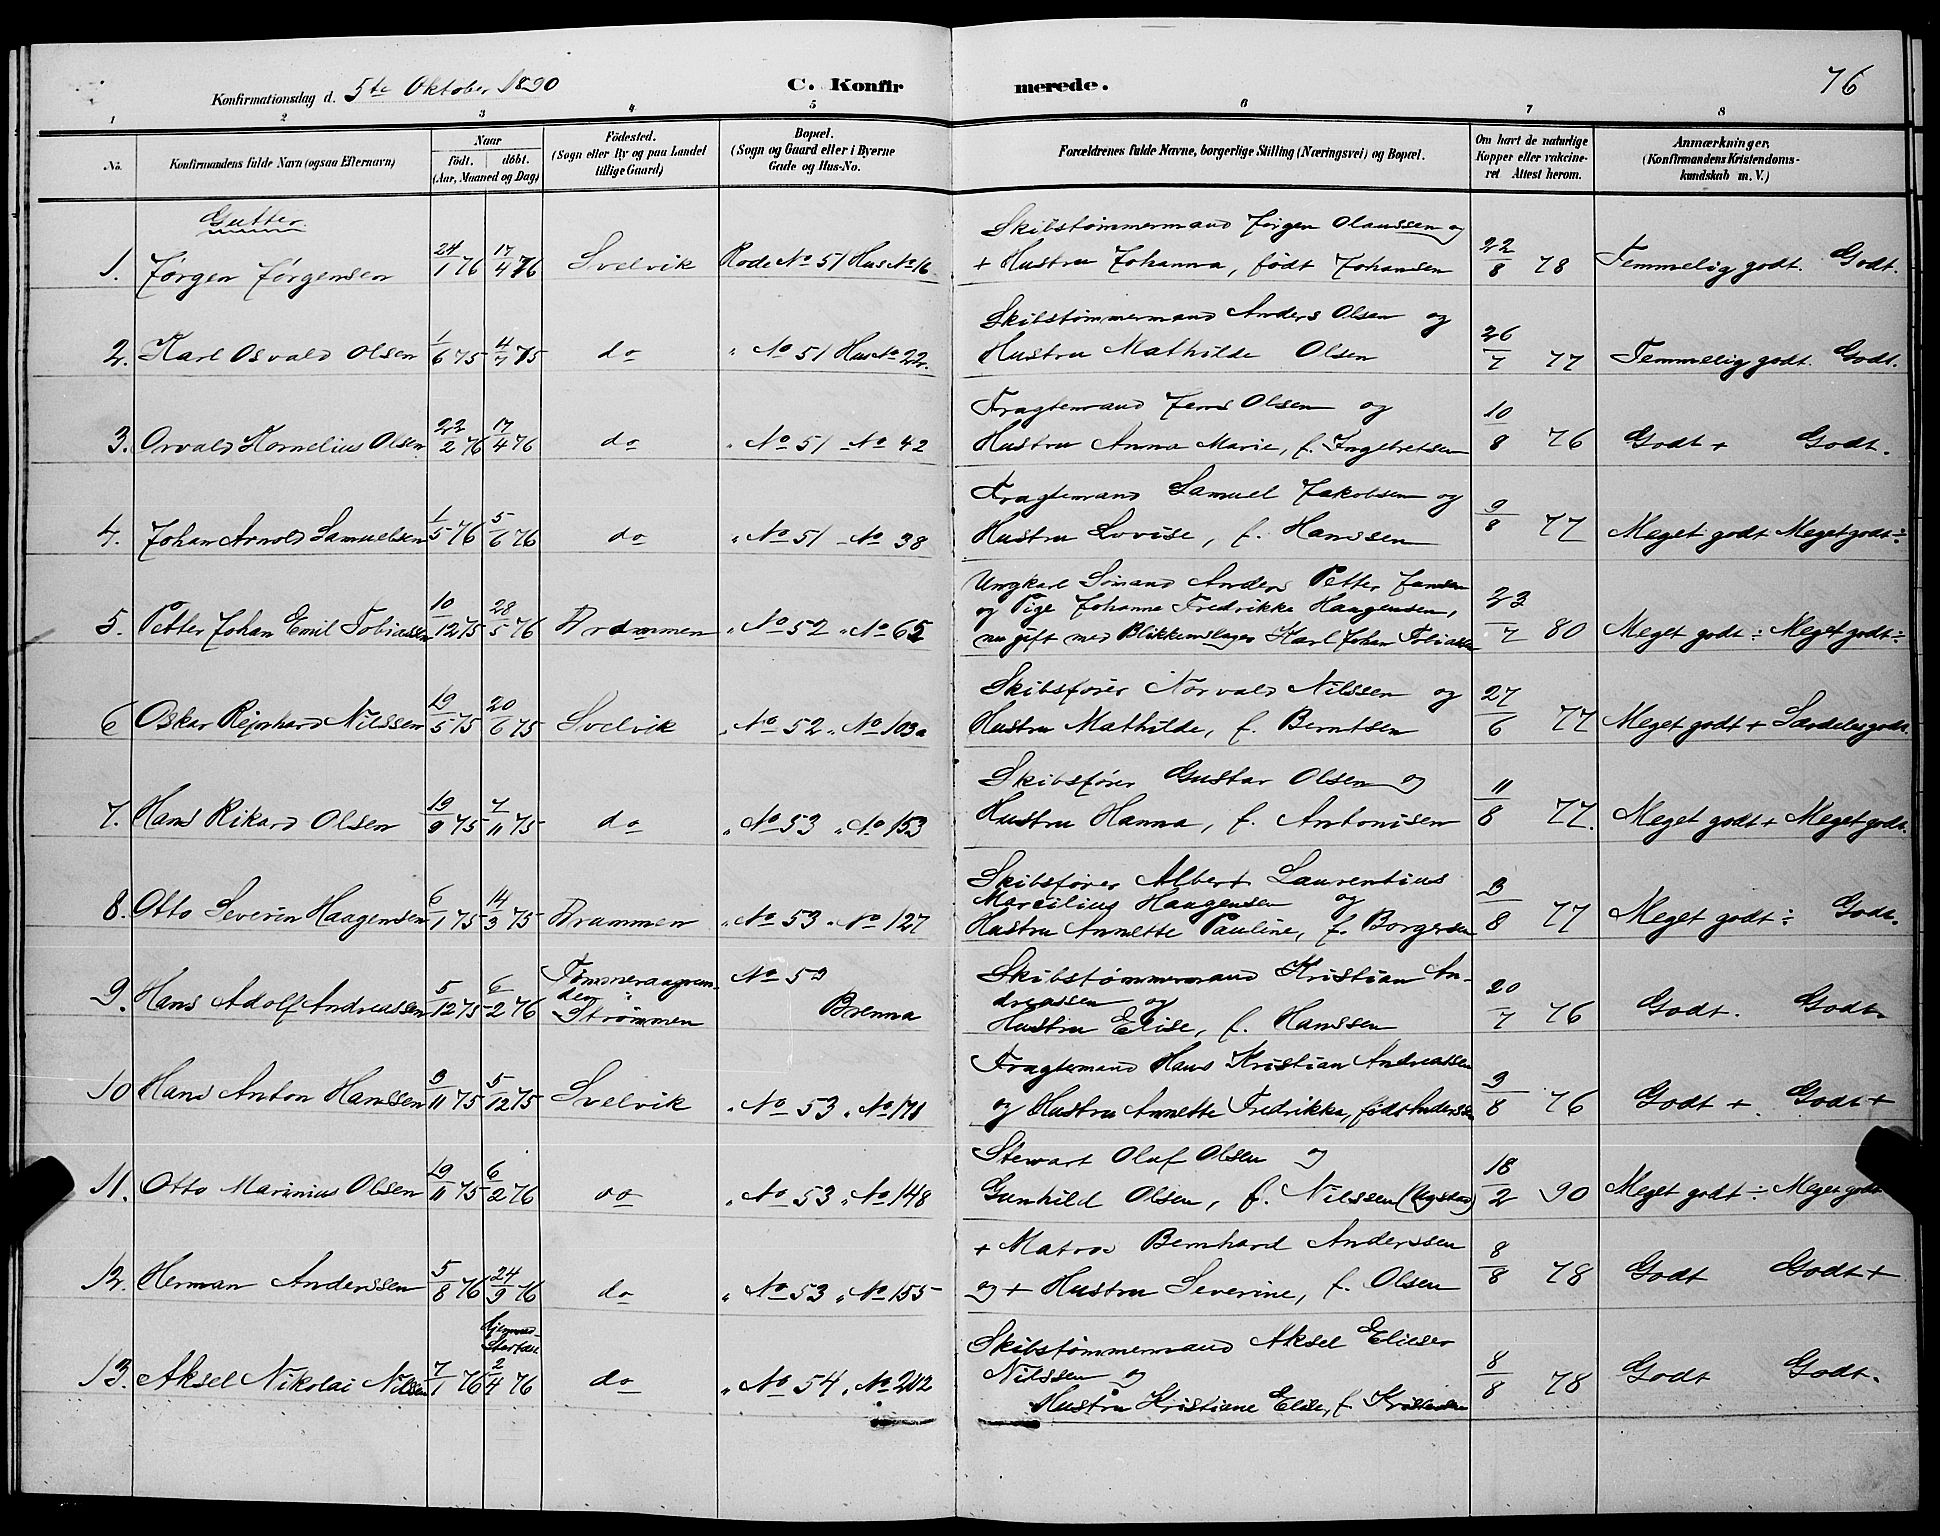 Konfirmationsdag d. 5te Oktober 1890 C. Konfirmerede. 76
1 2 3 4 5 6 7 8
No. Konfirmandens fulde Navn (ogsaa Efternavn) Naar født. døbt. (Aar, Maaned og Dag) Födested. (Sogn eller By og paa Landet tillige Gaard) Bopæl. (Sogn og Gaard eller i Byerne Gade og Hus-No. Forældrenes fulde Navne, borgerlige Stilling (Næringsvei) og Bopæl. Om havt de naturlige Kopper eller vakcineret Attest herom. Anmærkninger, (Konfirmandens Kristendomskundskab m. V.)
Gutter.
1. Jørgen Jørgensen 24/1 76 17/4 76 Svelvik Rode No 51 Hus No 16 Skibstømmermand Jørgen Olaussen og
+ Hustru Johanna, født Johansen 22/8 78 Temmelig godt. Godt.
2. Karl Osvald Olsen 1/6 75 4/7 75 do " No 51 Hus No 22. Skibstømmermand Anders Olsen og
Hustru Mathilde Olsen 26/7 77 Temmelig godt. Godt.
3. Orvald Kornelius Olsen 22/2 76 17/4 76 do " No 51 - No 42 Fragtemand Jens Olsen og
Hustru Anna Marie, f. Ingebretsen 10/8 76 Godt + Godt.
4. Johan Arnold Samuelsen 1/5 76 5/6 76 do " No 51 - No 38 Fragtemand Samuel Jakobsen og
Hustru Lovise, f. Hanssen 9/8 77 Meget godt Meget godt ÷
5. Petter Johan Emil Tobiassen 10/12 75 28/5 76 Drammen " No 52 " No 65 Ungkarl Sømand Anders Petter Jansen
og Pige Johanna Fredrikke Haagensen,
nu gift med Blikkenslager Karl Johan Tobiassen 23/7 80 Meget godt ÷ Meget godt ÷
6 Oskar Rejnhard Nilssen 19/5 75 20/6 75 Svelvik " No 52 " No 103a Skibsfører Norvald Nilssen og
Hustru Mathilde, f. Berntsen 27/6 77 Meget godt + Særdeles godt.
7. Hans Rikard Olsen 19/9 75 7/11 75 do " No 53 " No 153 Skibsfører Gustav Olsen og
Hustru Hanna, f. Antonisen 11/8 77. Meget godt + Meget godt.
8. Otto Severin Haagensen 6/1 75 14/3 75 Drammen " No 53 " No 127 Skibsfører Albert Laurentius
Marcilius Haagensen og
Hustru Annette Pauline, f. Borgersen 3/8 77 Meget godt ÷ Godt.
9. Hans Adolf Andreassen 5/12 75 6/2 76 Strømmen No 53
Brenna Skibstømmermand Kristian Andreassen og
Hustru Elise, f. Hanssen 20/7 76 Godt. Godt.
10 Hans Anton Hanssen 3/11 75 5/12 75 Svelvik " No 53 " No 171 Fragtemand Hans Kristian Andreassen
og Hustru Annette Fredrikke, født Anderssen 3/8 76 Godt + Godt +
11. Otto Marinius Olsen 19/11 75 6/2 76 do " No 53 " No 148 Stewart Oluf Olsen og
Gunhild Olsen, f. Nilssen 18/2 90 Meget godt ÷ Meget godt
12. Herman Anderssen 5/8 76 24/9 76 do " No 53 " No 155 + Matros Bernhard Anderssen
og + Hustru Severine, f. Olsen 8/8 78 Godt Godt +
13. Aksel Nikolai Nilsen 7/1 76 2/4 76 do " No 54 " No 212 Skibstømmermand Aksel Elieser
Nilssen og
Hustru Kristiane Elise, f. Kristensen 8/8 78 Godt Godt.